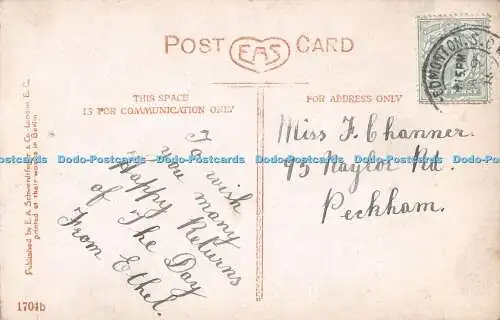 POST EAS CARD
THIS SPACE
IS FOR COMMUNICATION ONLY
FOR ADDRESS ONLY
To wish
you many
Happy Returns
of The Day
From Ethel.
Miss F. Channer.
95 Naylor Rd.
Peckham.
EDMONTON. S.O
Published by E. A. Schwerdtfeger & Co. London E. C.
printed at their works in Berlin
1704b
Dodo-Postcards Dodo-Postcards Dodo-Postcards Dodo-Postcards